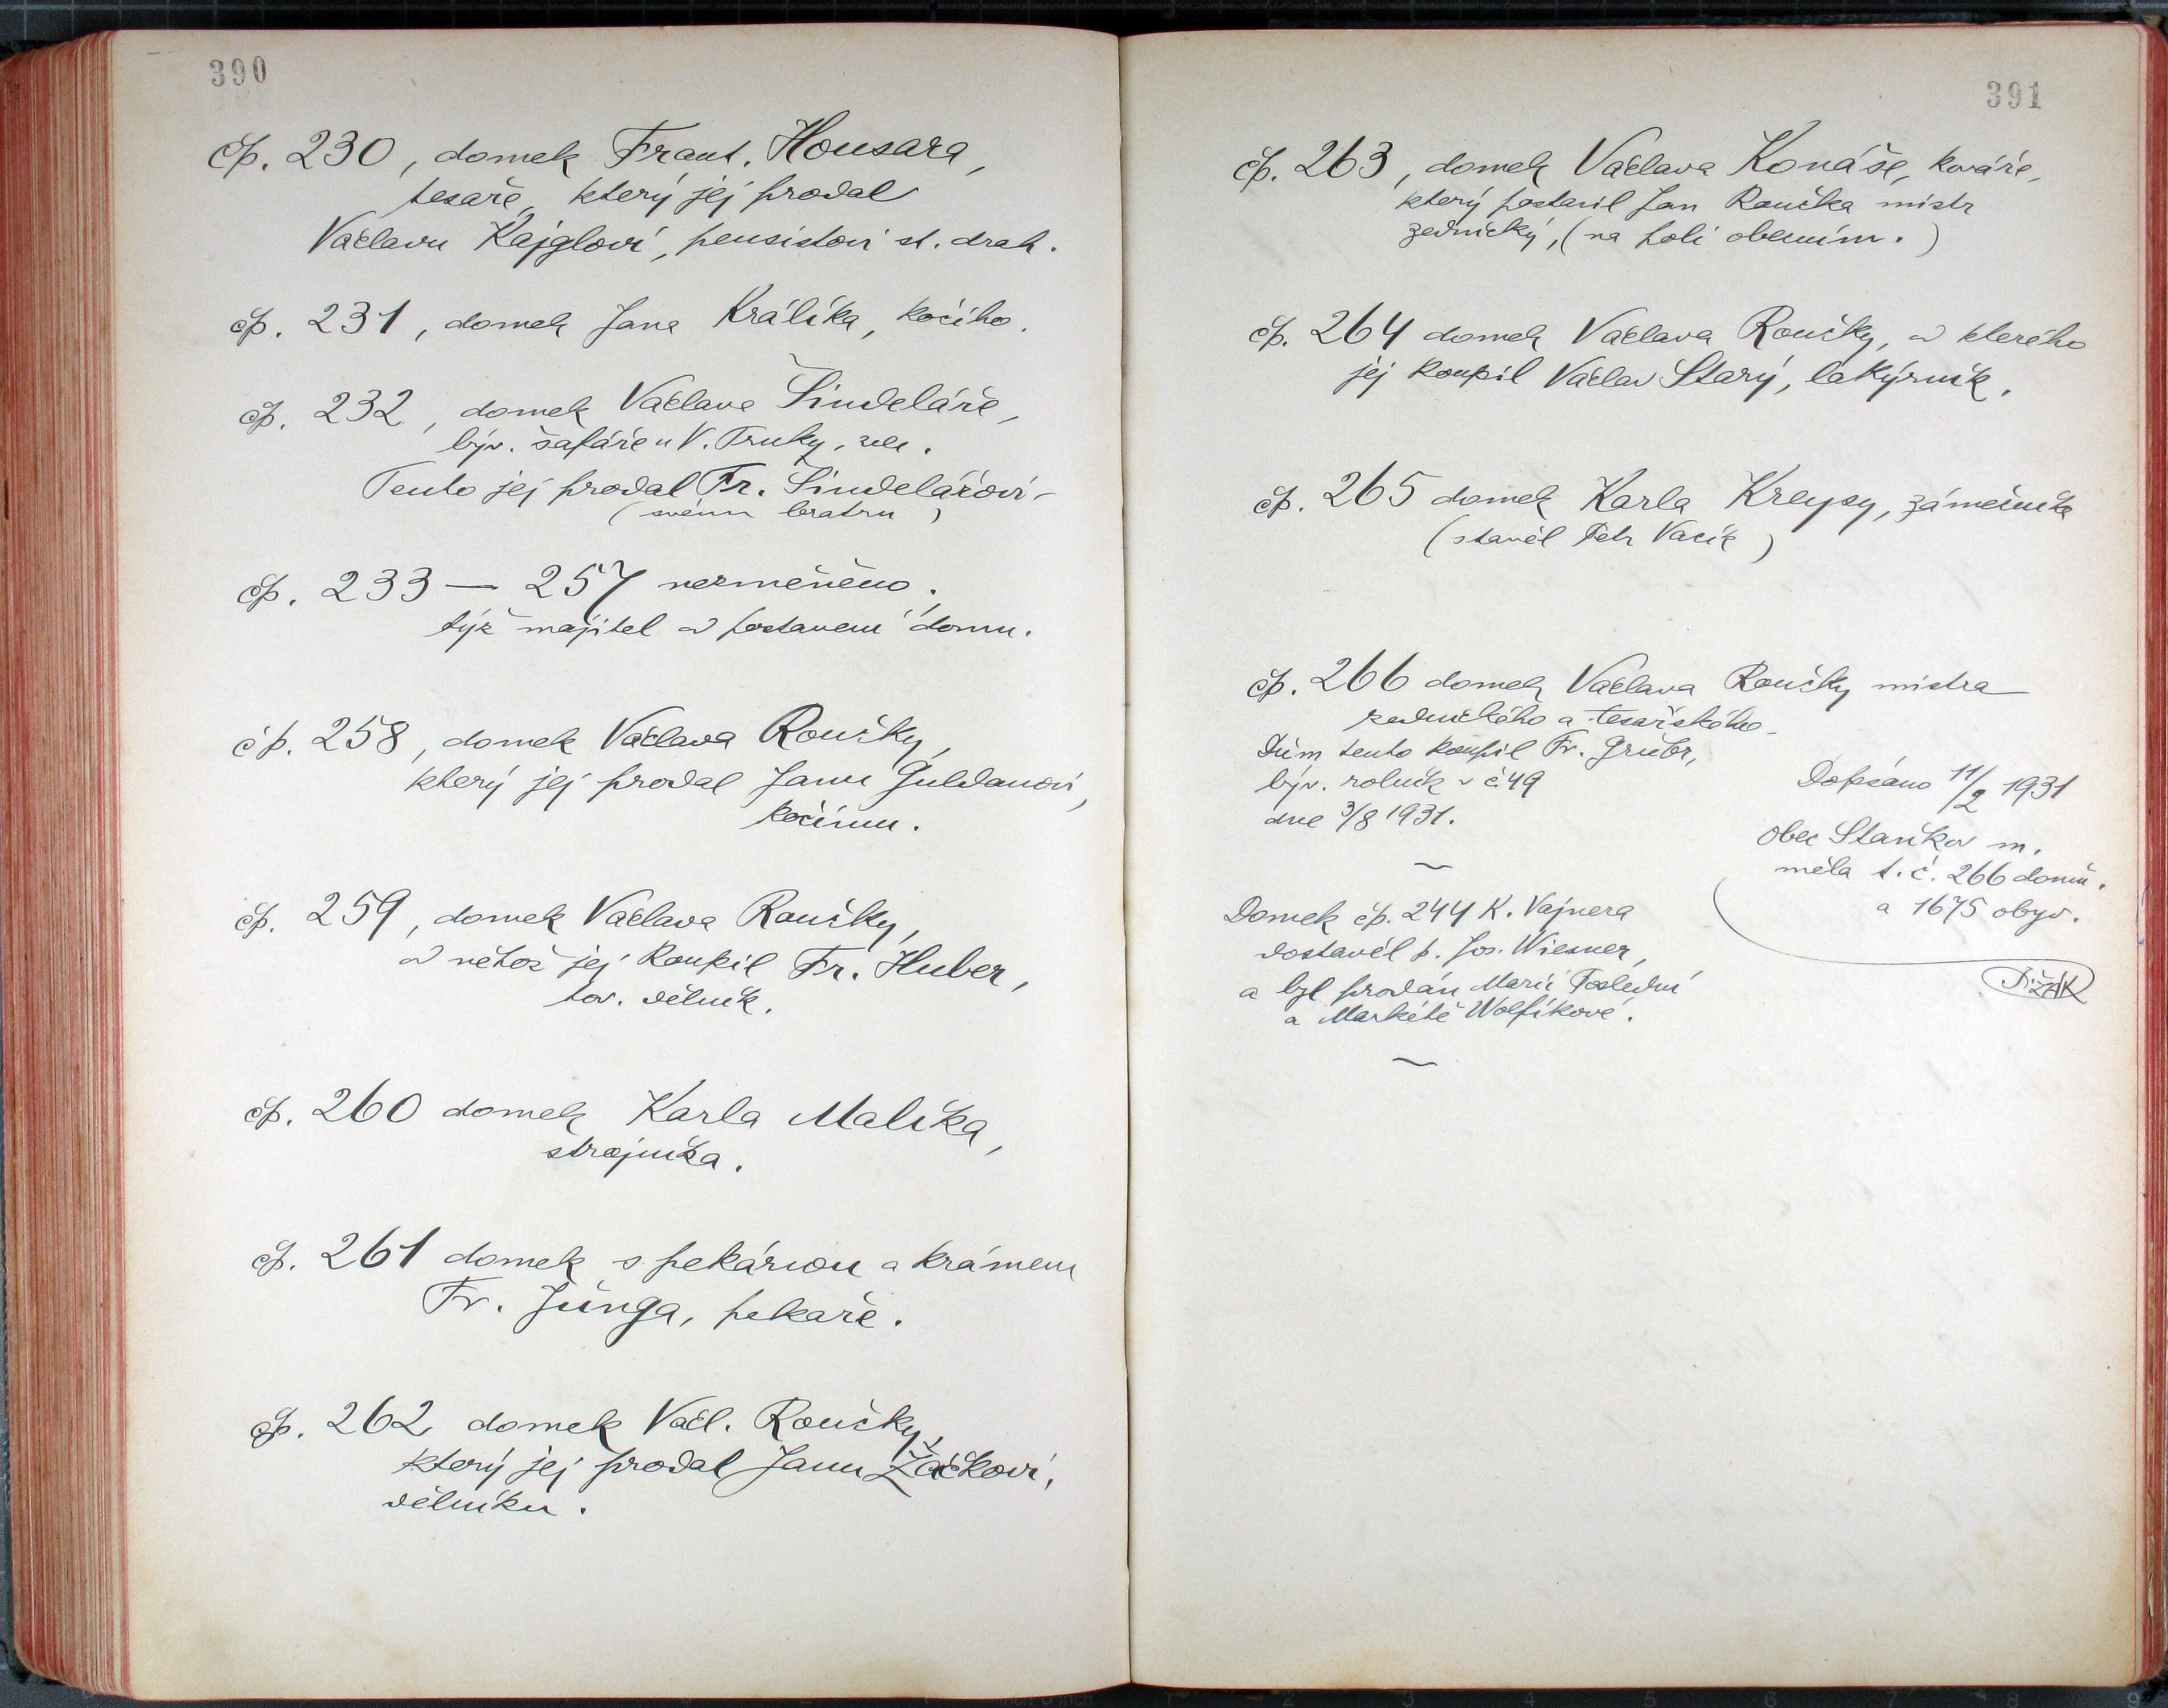 390
čp. 230, domek Frant. Housara,
tesaře, který jej prodal
Václavu Kajglovi, pensistovi st. drah.
čp. 231, domek Jana Králíka, kočího.
čp. 232, domek Václava Šindeláře,
býv. šafáře u V. Truky, zem.
Tento jej prodal Fr. Šindelářovi –
(svému bratru)
čp. 233 — 257 nezměněno.
týž majitel od postavení domu.
čp. 258, domek Václava Roučky,
který jej prodal Janu Guldanovi,
kočímu.
čp. 259, domek Václava Roučky,
od něhož jej koupil Fr. Huber,
tov. dělník.
čp. 260 domek Karla Malíka,
strojníka.
čp. 261 domek s pekárnou a krámem
Fr. Junga, pekaře.
čp. 262 domek Václ. Roučky,
který jej prodal Janu Žáčkovi,
dělníku.
391
čp. 263, domek Václava Konáše, kováře,
který postavil Jan Roučka mistr
zednický, (na poli obecním.)
čp. 264 domek Václava Roučky, od kterého
jej koupil Václav Starý, lakýrník.
čp. 265 domek Karla Kreysy, zámečníka
(stavěl Petr Vacík)
čp. 266 domek Václava Roučky mistra
zednického a tesařského.
Dům tento koupil Fr. Grubr,
býv. rolník v č 49
dne 3/8 1931.
Dopsáno 11/2 1931
obec Staňkov m.
měla t. č. 266 domů.
a 1675 obyv.
Domek čp. 244 K. Vajnera
dostavěl p. Jos. Wiesner,
a byl prodán Marii Poslední
a Markétě Wolfíkové.
ŽÁK